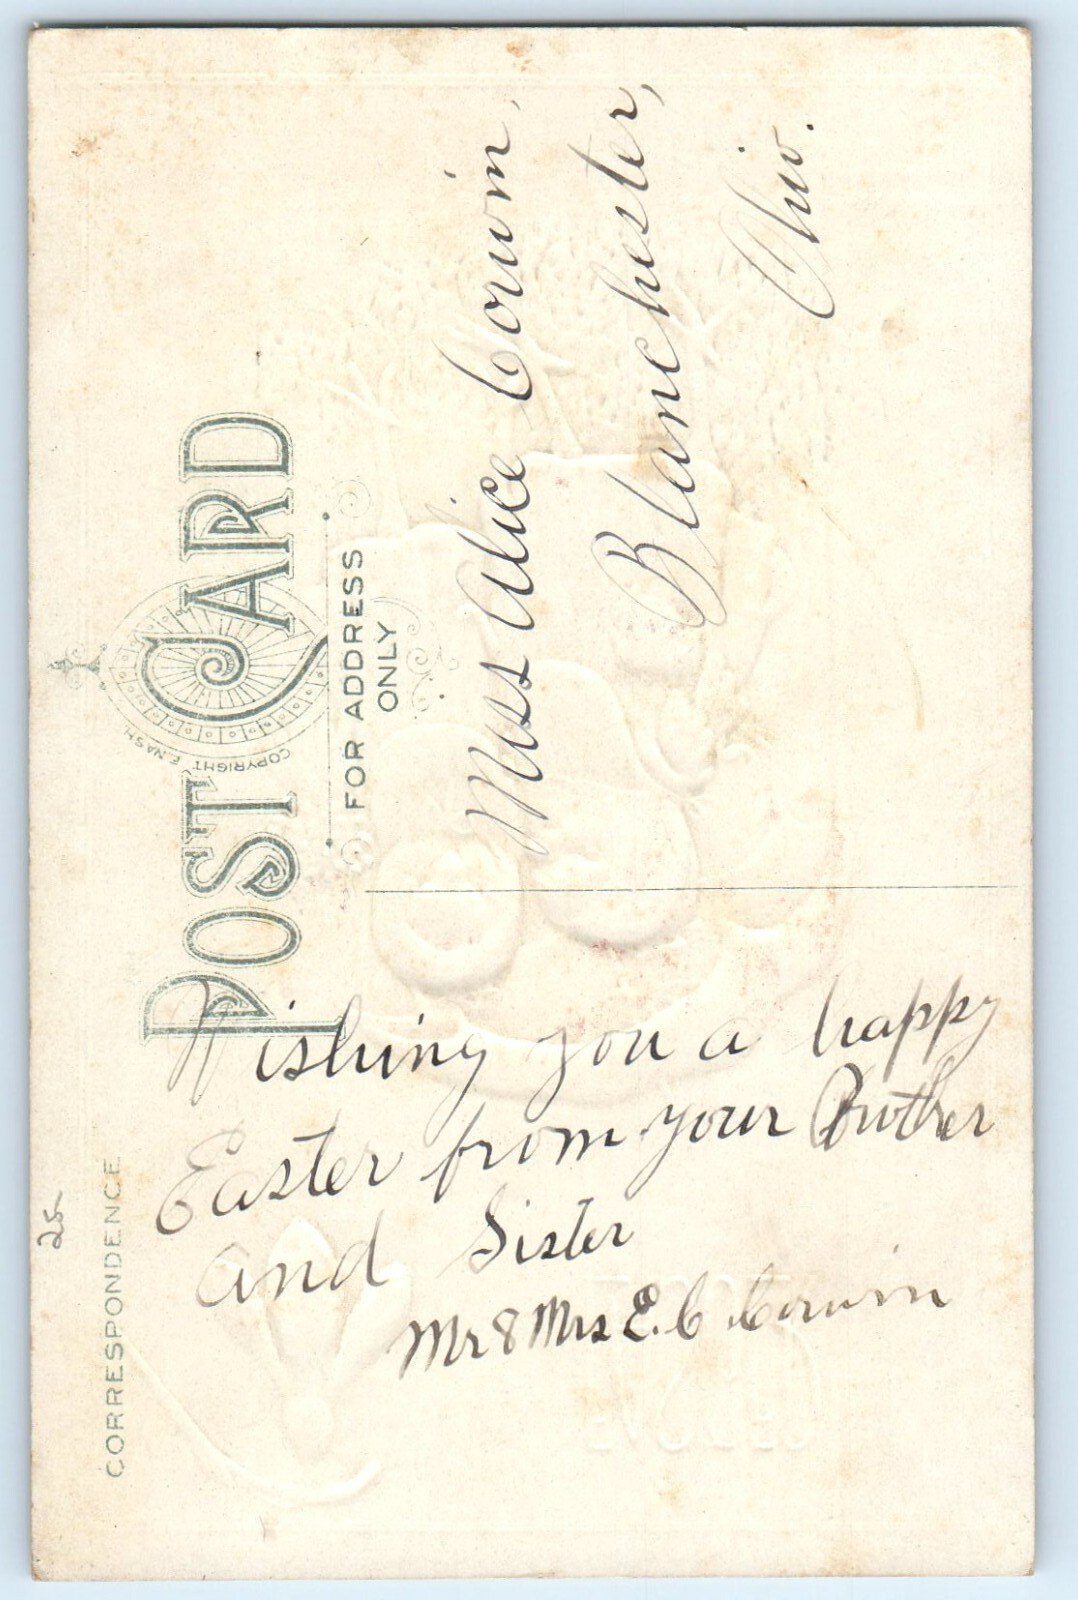 POST CARD
COPYRIGHT E. NASH
FOR ADDRESS
ONLY
Miss Alice Corwin,
Blanchester,
Ohio.
25-
CORRESPONDENCE
Wishing you a happy
Easter from your Brother
and Sister
Mr & Mrs E. C Corwin